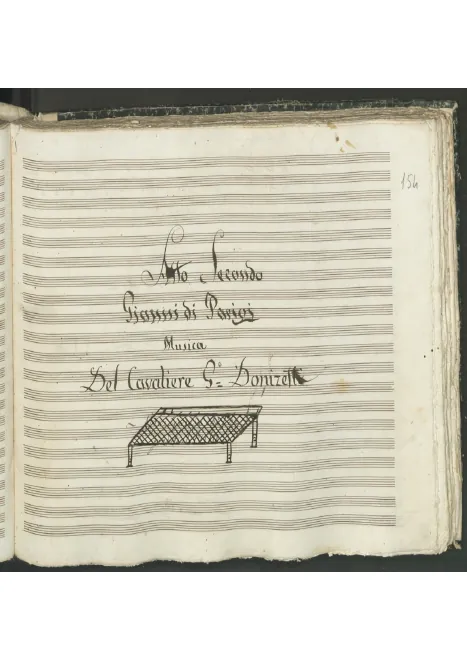 154
Atto Secondo
Gianni di Parigi
Musica
Del Cavaliere G.º Donizetti